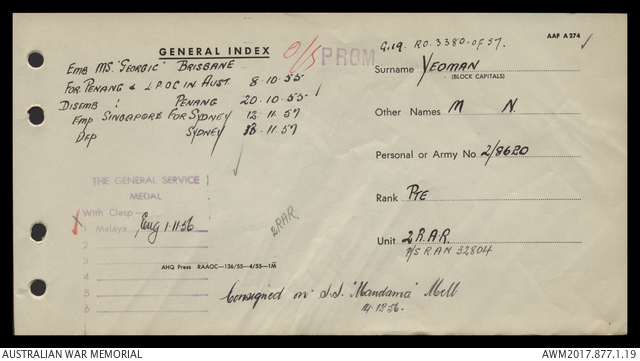 AAF A274
GENERAL INDEX
O/S
PROM
G.19. RO. 3380-OF 57.
Emb MS. "GEORGIC" BRISBANE
FOR PENANG & L.P.OC IN AUST. 8-10-55
DISEMB : PENANG 20-10-55
Emp SINGAPORE FOR SYDNEY 12.11.57
Dep SYDNEY 11.57
Surname YEOMAN
(BLOCK CAPITALS)
Other Names M N.
Personal or Army No. 2/8620
Rank PTE
Unit 2 R.A.R.
P/S RAN 32804
THE GENERAL SERVICE
MEDAL
With Clasp
1 Malaya Eng 1.11.56
2
3
4
5
6
2RAR
AHQ Press RAAOC—136/55—4/55—1M
Consigned on S.S. "Mandama" Melb
14.12.56.
AUSTRALIAN WAR MEMORIAL
AWM2017.877.1.19